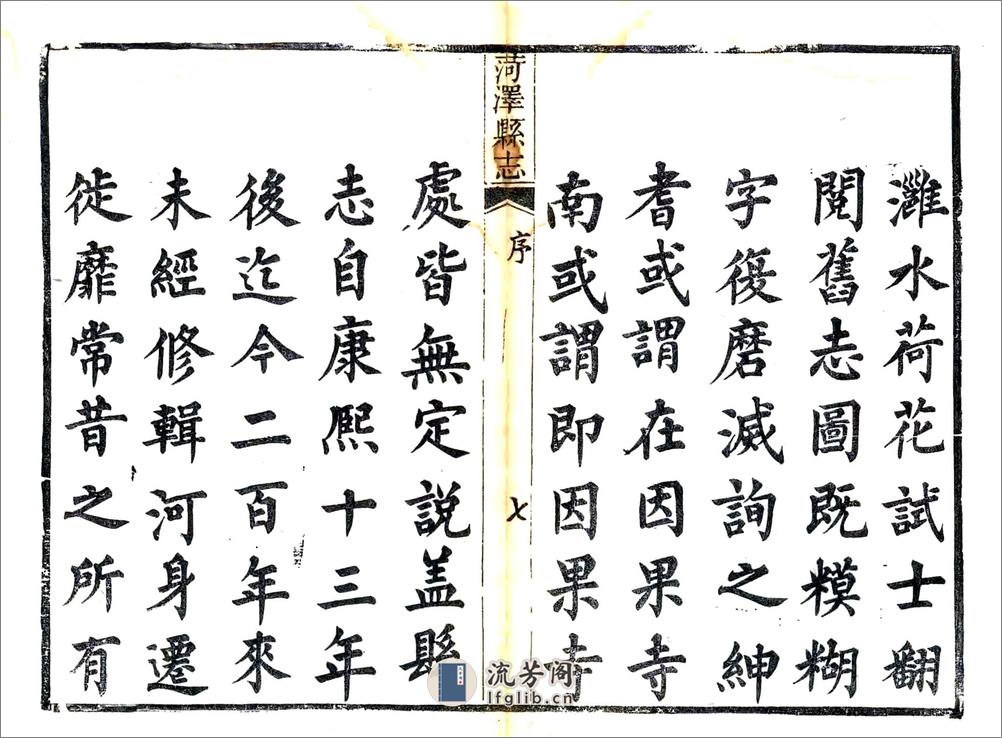 灉水荷花試士翻
閱舊志圖既糢糊
字復磨滅詢之紳
耆或謂在因果寺
南或謂即因果寺
菏澤縣志
序
七
處皆無定説盖縣
志自康熙十三年
後迄今二百年來
未經修輯河身遷
徙靡常昔之所有
流芳阁
lfglib.cn